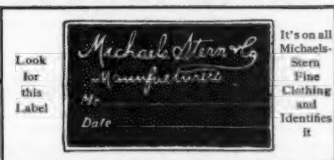 Look
for
this
Label
Michaels Stern & Co
Manufacturers
Mr.
Date
It's on all
Michaels-
Stern
Fine
Clothing
and
Identifies
it